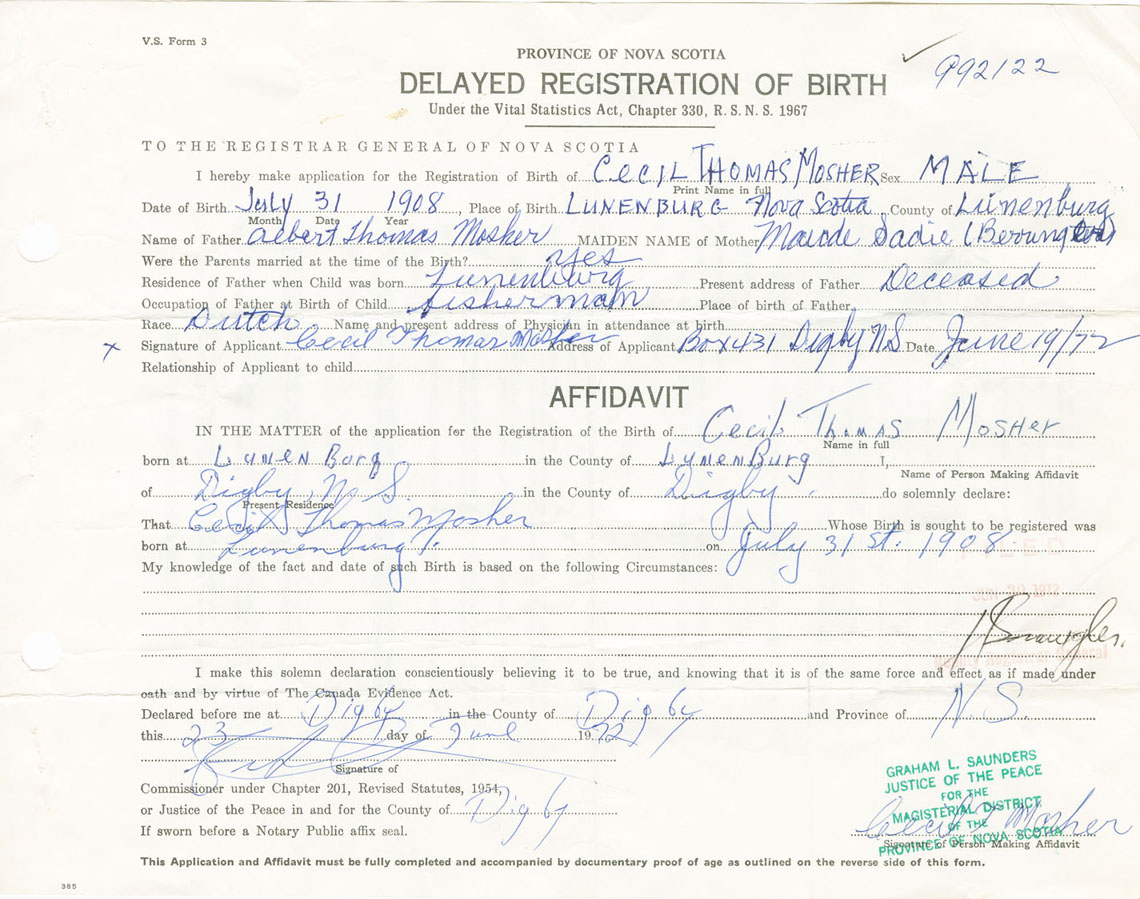 V.S. Form 3
PROVINCE OF NOVA SCOTIA
992122
DELAYED REGISTRATION OF BIRTH
Under the Vital Statistics Act, Chapter 330, R.S.N.S. 1967
TO THE REGISTRAR GENERAL OF NOVA SCOTIA
I hereby make application for the Registration of Birth of CECIL THOMAS MOSHER Sex MALE
Print Name in full
Date of Birth July 31 1908, Place of Birth LUNENBURG Nova Scotia County of Lunenburg
Month Date Year
Name of Father Albert Thomas Mosher MAIDEN NAME of Mother Maude Sadie
Were the Parents married at the time of the Birth? yes
Residence of Father when Child was born Lunenburg Present address of Father Deceased
Occupation of Father at Birth of Child fisherman Place of birth of Father
Race Dutch Name and present address of Physician in attendance at birth
x Signature of Applicant Cecil Thomas Mosher Address of Applicant Box 431 Digby NS Date June 19/72
Relationship of Applicant to child
AFFIDAVIT
IN THE MATTER of the application for the Registration of the Birth of Cecil Thomas Mosher
Name in full
born at LunenBorg in the County of LynenBurg I,
Name of Person Making Affidavit
of Digby N.S. in the County of Digby. do solemnly declare:
Present Residence
That Cecil Thomas Mosher Whose Birth is sought to be registered was
born at Lunenburg on July 31st. 1908.
My knowledge of the fact and date of such Birth is based on the following Circumstances:
I make this solemn declaration conscientiously believing it to be true, and knowing that it is of the same force and effect as if made under
oath and by virtue of The Canada Evidence Act.
Declared before me at Digby in the County of Digby and Province of N.S.
this 23 day of June 1972
Signature of
Commissioner under Chapter 201, Revised Statutes, 1954,
or Justice of the Peace in and for the County of Digby
If sworn before a Notary Public affix seal.
GRAHAM L. SAUNDERS
JUSTICE OF THE PEACE
FOR THE
MAGISTERIAL DISTRICT
OF THE
PROVINCE OF NOVA SCOTIA
Cecil Mosher
Signature of Person Making Affidavit
This Application and Affidavit must be fully completed and accompanied by documentary proof of age as outlined on the reverse side of this form.
385